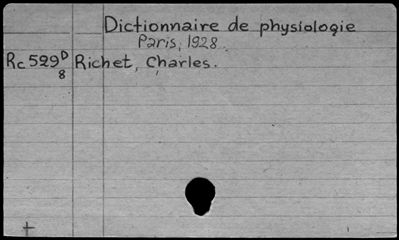 Dictionnaire de physiologie
Paris, 1928.
Rc529D Richet, Charles.
8